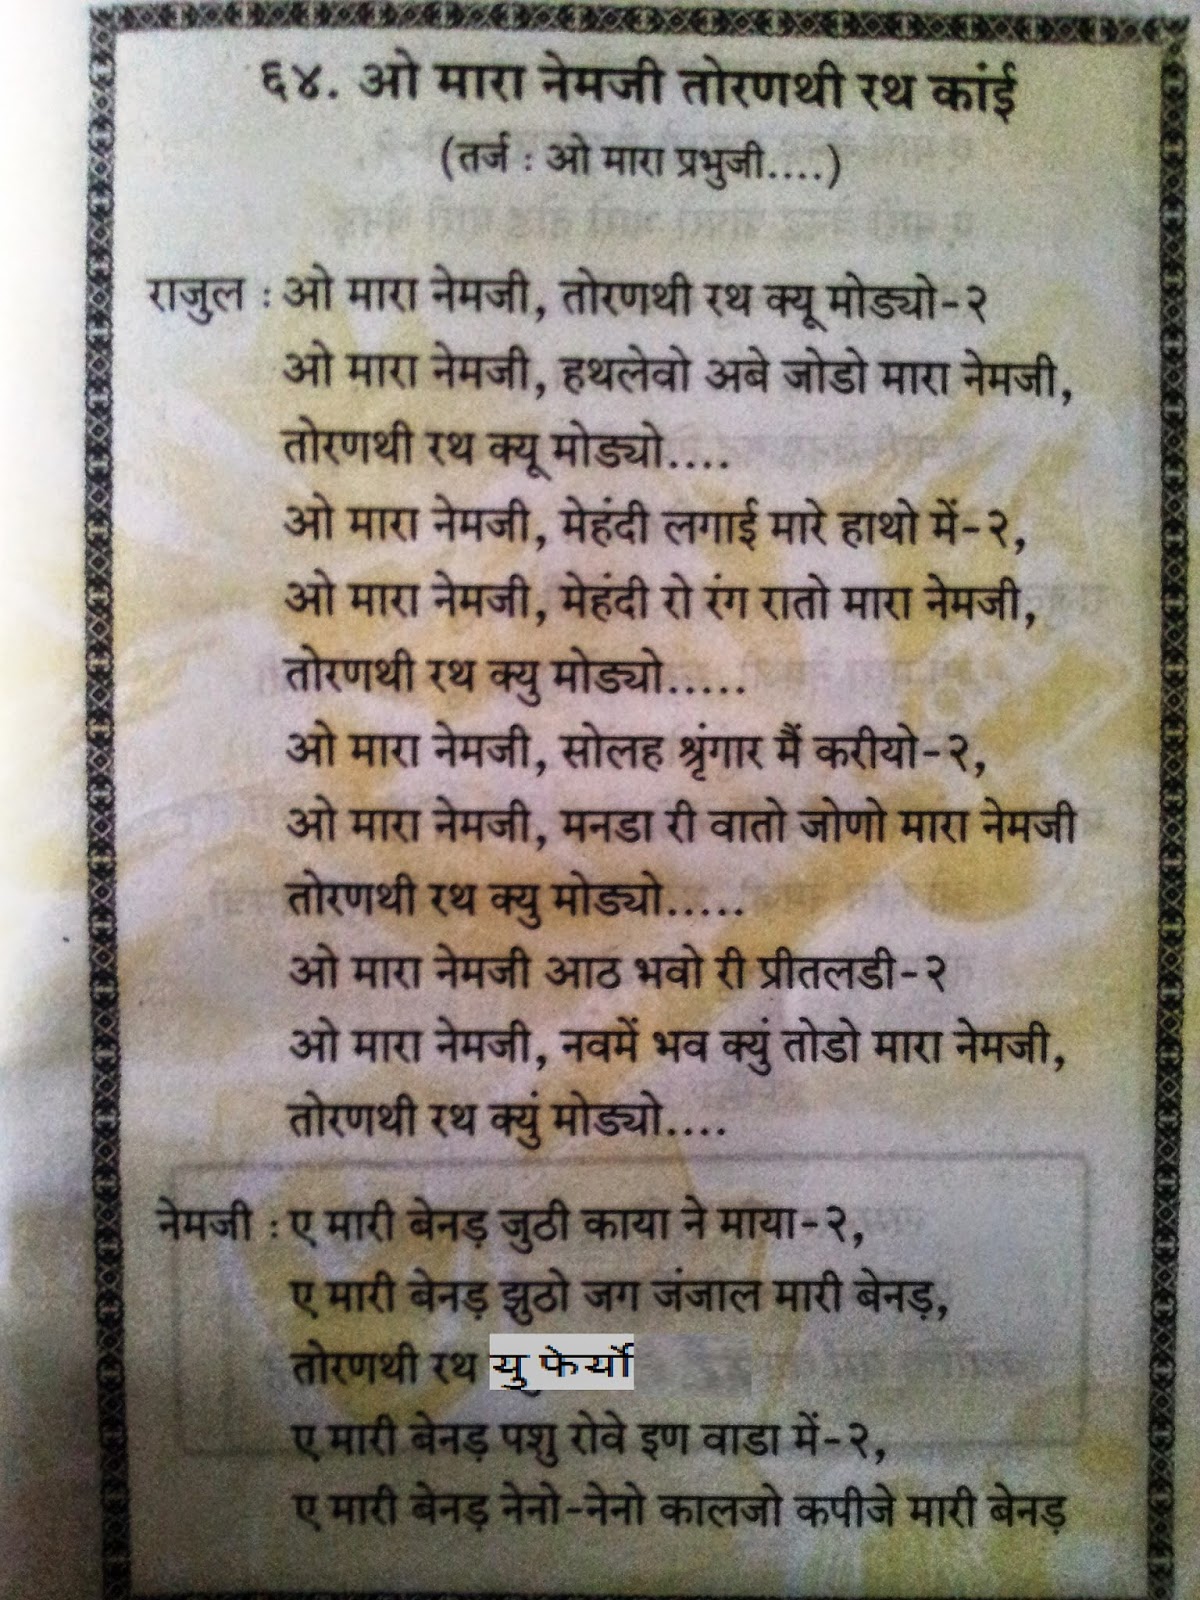 ६४. ओ मारा नेमजी तोरणथी रथ कांई
(तर्ज : ओ मारा प्रभुजी....)
राजुल : ओ मारा नेमजी, तोरणथी रथ क्यू मोड्यो-२
ओ मारा नेमजी, हथलेवो अबे जोडो मारा नेमजी,
तोरणथी रथ क्यू मोड्यो....
ओ मारा नेमजी, मेहंदी लगाई मारे हाथो में-२,
ओ मारा नेमजी, मेहंदी रो रंग रातो मारा नेमजी,
तोरणथी रथ क्यु मोड्यो.....
ओ मारा नेमजी, सोलह श्रृंगार मैं करीयो-२,
ओ मारा नेमजी, मनडा री वातो जोणो मारा नेमजी
तोरणथी रथ क्यु मोड्यो.....
ओ मारा नेमजी आठ भवो री प्रीतलडी-२
ओ मारा नेमजी, नवमें भव क्युं तोडो मारा नेमजी,
तोरणथी रथ क्युं मोड्यो....
नेमजी : ए मारी बेनड़ जुठी काया ने माया-२,
ए मारी बेनड़ झुठो जग जंजाल मारी बेनड़,
तोरणथी रथ यु फेर्यो
ए मारी बेनड़ पशु रोवे इण वाडा में-२,
ए मारी बेनड़ नेनो-नेनो कालजो कपीजे मारी बेनड़